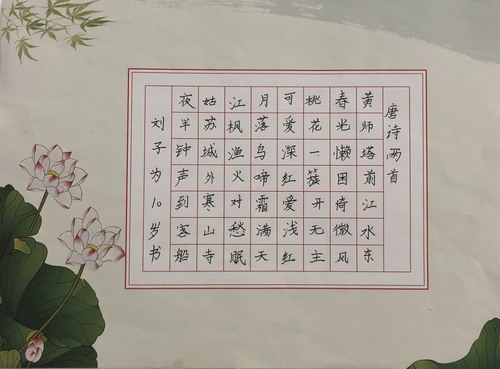 唐诗两首
黄师塔前江水东
春光懒困倚微风
桃花一簇开无主
可爱深红爱浅红
月落乌啼霜满天
江枫渔火对愁眠
姑苏城外寒山寺
夜半钟声到客船
刘子为10岁书